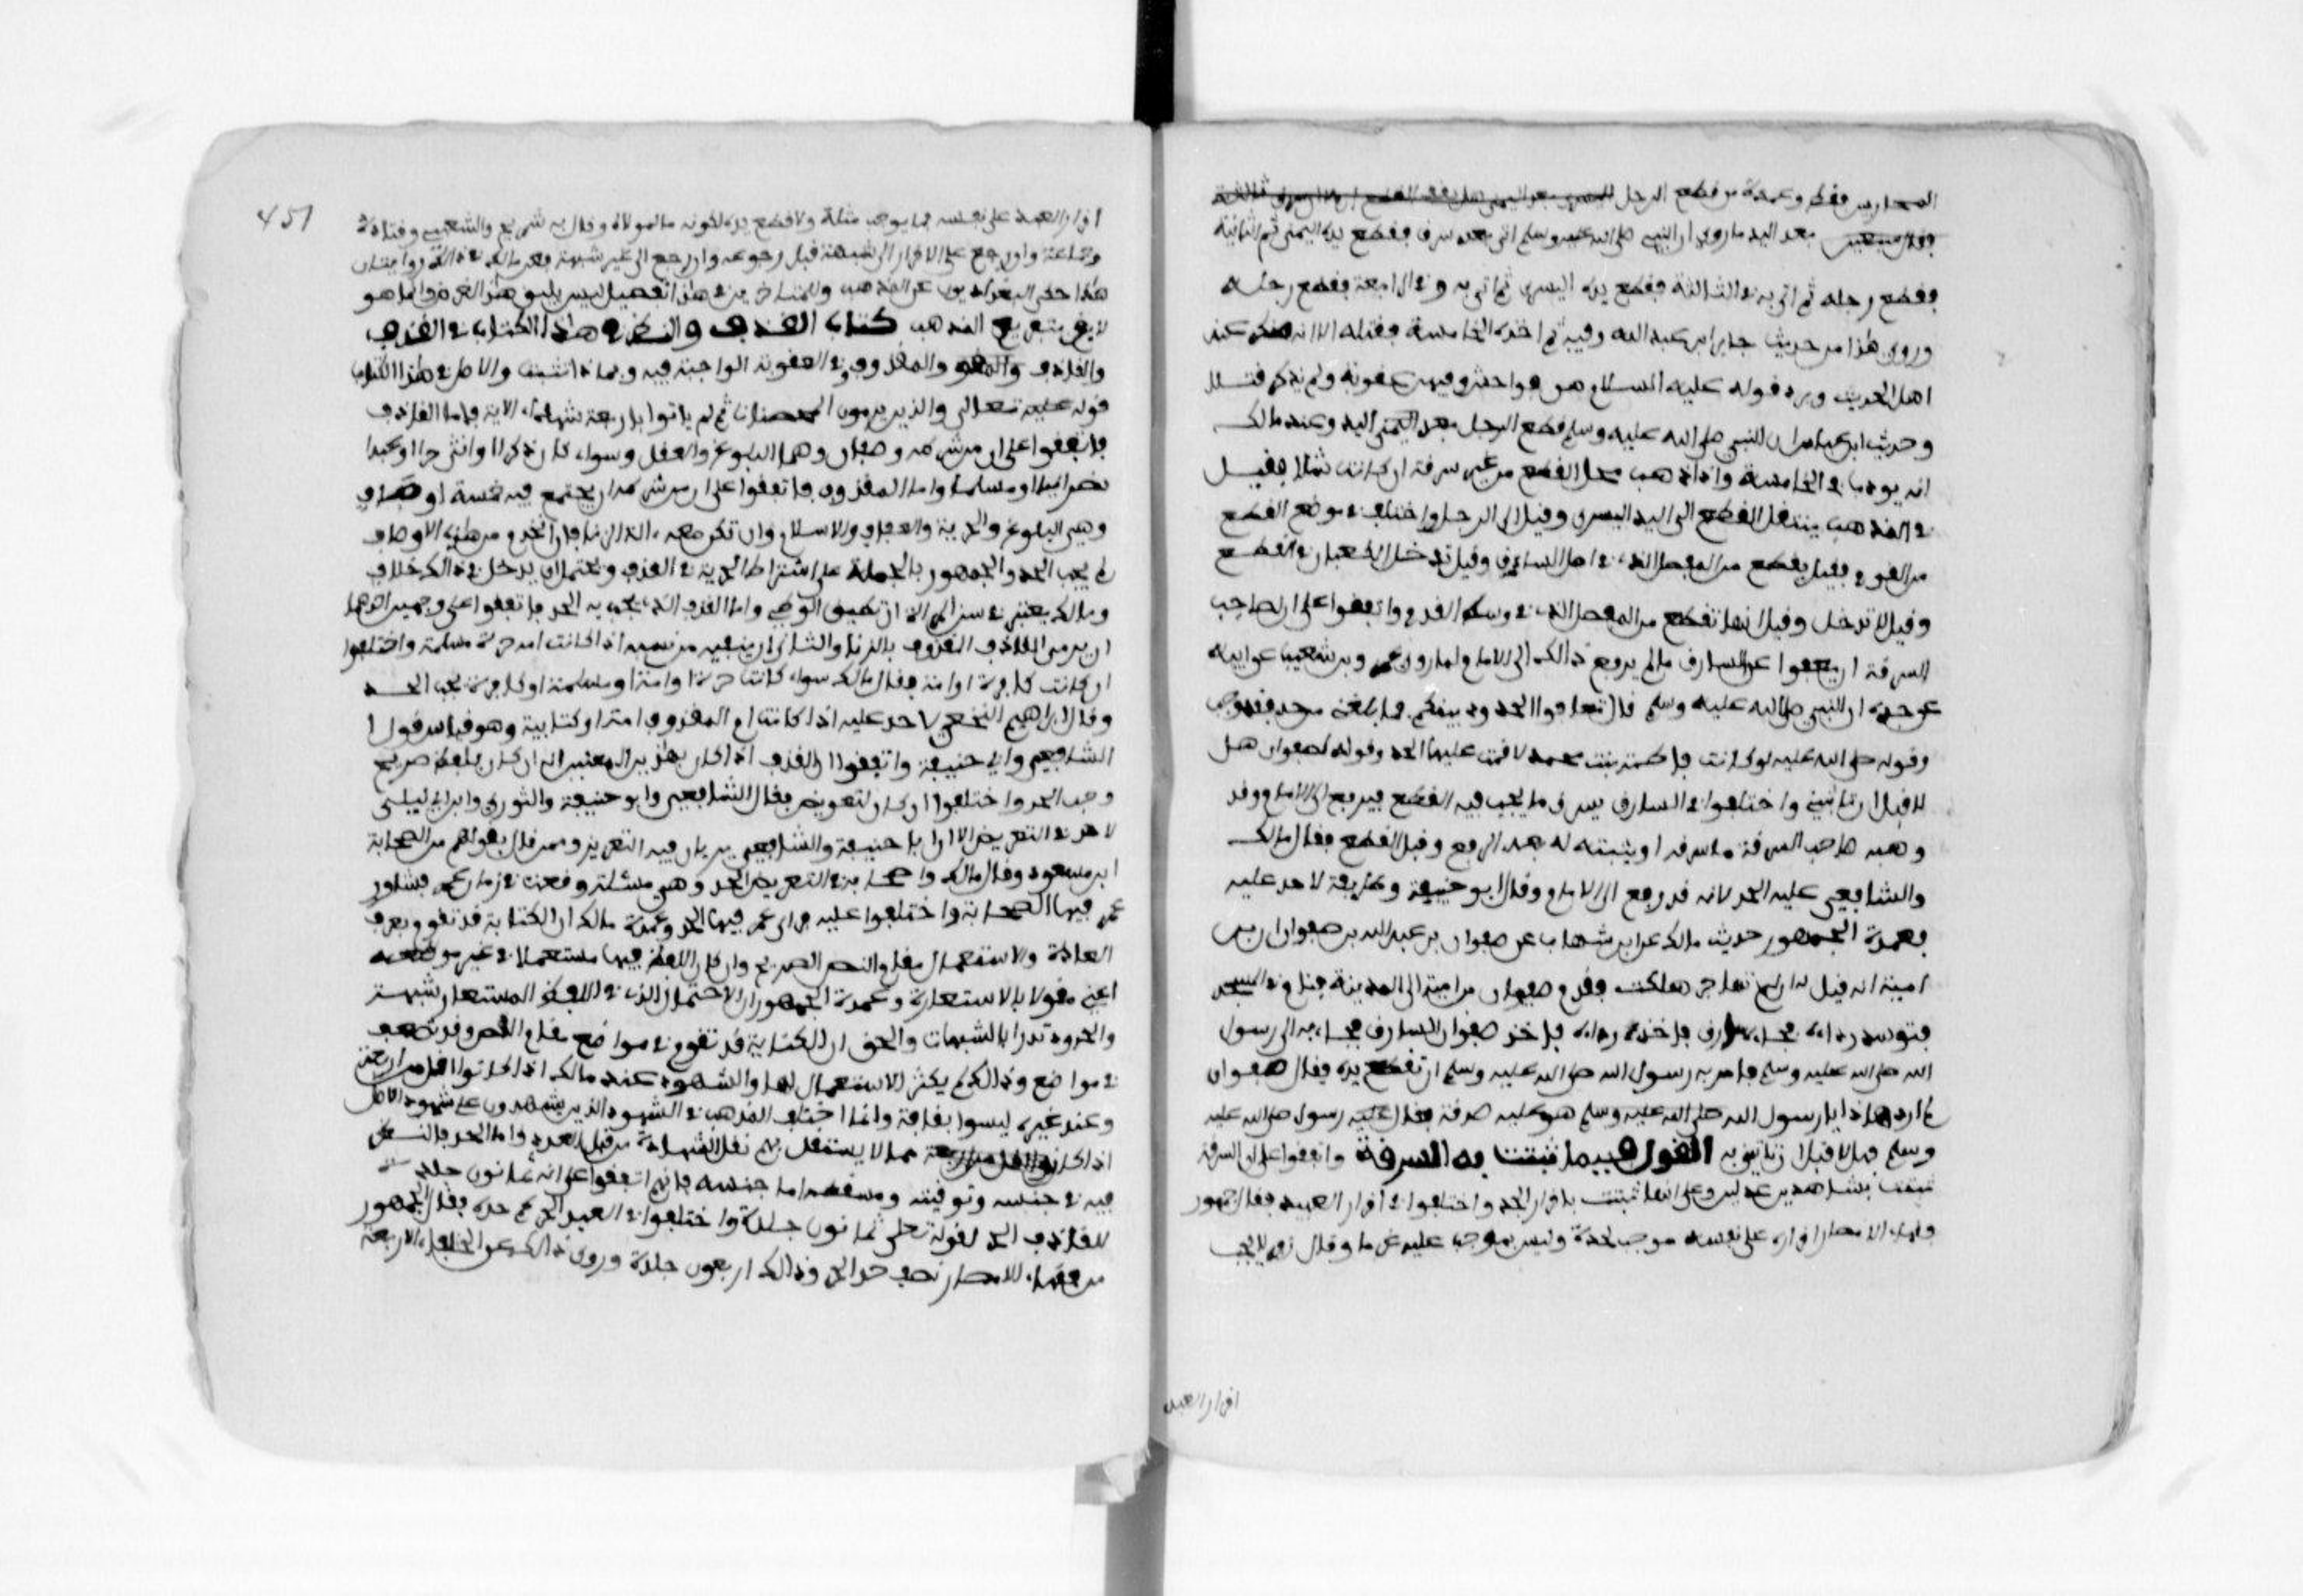 المحاربين فقط وعمدة من قطع الرجل
بعد اليد ما روي ان النبي صلى الله عليه وسلم اتي بعبد سرق فقطع يده اليمنى ثم الثانية
فقطع رجله ثم اتي به في الثالثة فقطع يده اليسرى ثم اتي به في الرابعة فقطع رجله
وروي هذا من حديث جابر ابن عبد الله وفيه ثم اخذه الخامسة فقتله الا انه منكر عند
اهل الحديث ويرده قوله عليه السلام هن فواحش وفيهن عقوبة ولم يذكر قتلا
وحديث ابن عباس ان النبي صلى الله عليه وسلم قطع الرجل بعد اليد وعند مالك
انه يودب في الخامسة واذا ذهب محل القطع من غير سرقة ان كانت شلا فقيل
في المذهب ينتقل القطع الى اليد اليسرى وقيل الى الرجل واختلف في موضع القطع
من القدم فقيل يقطع من المفصل الذي في اصل الساق وقيل تدخل الكعبان في القطع
وقيل لا تدخل وقيل انها تقطع من المفصل الذي في وسط القدم واتفقوا على ان لصاحب
السرقة ان يعفوا عن السارق مالم يرفع ذالك الى الامام لما روى عمرو بن شعيب عن ابيه
عن جده ان النبي صلى الله عليه وسلم قال تعافوا الحدود بينكم فما بلغني من حد فقد وجب
وقوله صلى الله عليه لو كانت فاطمة بنت محمد لاقمت عليها الحد وقوله لصفوان هل
لا قبل ان تاتيني واختلفوا في السارق يسرق ما يجب فيه القطع فيرفع الى الامام وقد
وهب صاحب السرقة ما سرقه او يثبته له بعد الرفع وقبل القطع فقال مالك
والشافعي عليه الحد لانه قد رفع الى الامام وقال ابو حنيفة وطايفة لا حد عليه
فعمدة الجمهور حديث مالك عن ابن شهاب عن صفوان بن عبد الله بن صفوان ابن
امية انه قيل له ان لم تهاجر هلكت فقدم صفوان بن امية الى المدينة فنام في المسجد
فتوسد رداءه فجاء سارق فاخذ رداءه فاخذ صفوان السارق فجاء به الى رسول
الله صلى الله عليه وسلم فامر به رسول الله صلى الله عليه وسلم ان تقطع يده فقال صفوان
لم ارد هاذا يا رسول الله صلى الله عليه وسلم هو عليه صدقة فقال رسول صلى الله عليه
وسلم فهلا قبل ان تاتيني به القول فيما تثبت به السرقة واتفقوا على ان السرقة
تثبت بشاهدين عدلين وعلى انها تثبت باقرار الحر واختلفوا في اقرار العبيد فقال جمهور
فقهاء الامصار اقراره على نفسه موجب لحده وليس بموجب عليه غرما وقال زفر لا يجب
اقرار العبد
451
اقرار العبد على نفسه بما يوجب مثله ولا قطع يده لكونه مالا لمولاه وقال به شريح والشافعي وقتادة
وجماعة وان رجع على الاقرار الى شبهة قبل رجوعه وان رجع الى غير شبهة فعن مالك في ذالك روايتان
هكذا حكى البغداديون عن المذهب وللمتاخرين في هذا تفصيل ليس يليق بهذا الغرض وانما هو
لايق بتفريع المذهب كتاب القذف والنظر في هاذا الكتاب في القذف
والقاذف والمقذوف وفي العقوبة الواجبة فيه وبماذا تثبت والاصل في هذا الكتاب
قوله تعالى والذين يرمون المحصنات ثم لم ياتوا باربعة شهداء الاية فاما القاذف
فاتفقوا على ان من شرطه وصفان وهما البلوغ والعقل وسواء كان ذكرا او انثى حرا او عبدا
نصرانيا او مسلما واما المقذوف فاتفقوا على ان من شرطه ان يجتمع فيه خمسة اوصاف
وهي البلوغ والحرية والعفاف والاسلام وان تكون معه الة الزنا فان انخرم من هذه الاوصاف
لم يجب الحد والجمهور بالجملة على اشتراط الحرية في القذف ويحتمل ان يدخل في ذالك خلاف
ومالك يعتبر في سن المراة ان تطيق الوطء واما القذف الذي يجب به الحد فاتفقوا على وجهين احدهما
ان يرمي القاذف المقذوف بالزنا والثاني ان ينفيه من نسبه اذا كانت امه حرة مسلمة واختلفوا
ان كانت كافرة او امة فقال مالك سواء كانت حرة او امة او مسلمة او كافرة يجب الحد
وقال ابراهيم النخعي لا حد عليه اذا كانت ام المقذوف امة او كتابية وهو قياس قول
الشافعي وابي حنيفة واتفقوا ان القذف اذا كان بهاذين المعنيين انه ان كان بلفظ صريح
وجب الحد واختلفوا ان كان بتعريض فقال الشافعي وابو حنيفة والثوري وابن ابي ليلى
لا حد في التعريض الا ان ابا حنيفة والشافعي يريان فيه التعزير وممن قال بقولهم من الصحابة
ابن مسعود وقال مالك واصحابه في التعريض الحد وهي مسئلة وقعت في زمان عمر فشاور
عمر فيها الصحابة واختلفوا عليه فراى عمر فيها الحد وعمدة مالك ان الكناية قد تقوم بعرف
العادة والاستعمال مقام النص الصريح وان كان اللفظ فيها مستعملا في غير موضعه
اعني مقولا بالاستعارة وعمدة الجمهور ان الاحتمال الذي في اللفظ المستعار شبهة
والحدود تدرا بالشبهات والحق ان الكناية قد تقوم في مواضع مقام النص وقد تضعف
في مواضع وذالك لم يكثر الاستعمال لها والشهود عند مالك اذا كانوا اقل من اربعة
وعند غيره ليسوا بقذفة وانما اختلف المذهب في الشهود الذين يشهدون على شهود الاصل
اذا كانوا مما لا يستقل بهم نقل الشهادة من قبل العدد واما الحد فالنظر
فيه في جنسه وتوقيته ومسقطه اما جنسه فانهم اتفقوا على انه ثمانون جلدة
للقاذف الحر لقوله تعلى ثمانون جلدة واختلفوا في العبد كم حده فقال الجمهور
من فقهاء الامصار نصف حد الحر وذالك اربعون جلدة وروي ذالك عن الخلفاء الاربعة